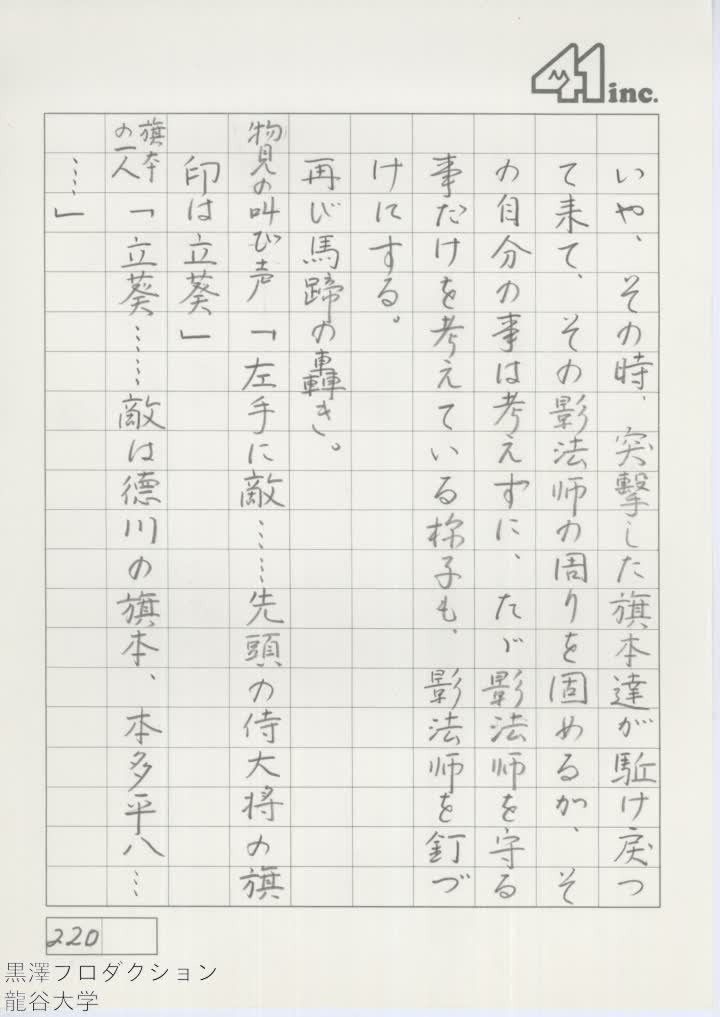 41 inc.
いや、その時、突撃した旗本達が駈け戻つ
て来て、その影法師の周りを固めるが、そ
の自分の事は考えずに、たゞ影法師を守る
事だけを考えている様子も、影法師を釘づ
けにする。
再び馬蹄の轟き。
物見の叫び声「左手に敵……先頭の侍大将の旗
印は立葵」
旗本の一人「立葵……敵は徳川の旗本、本多平八…
…」
220
黒澤プロダクション
龍谷大学